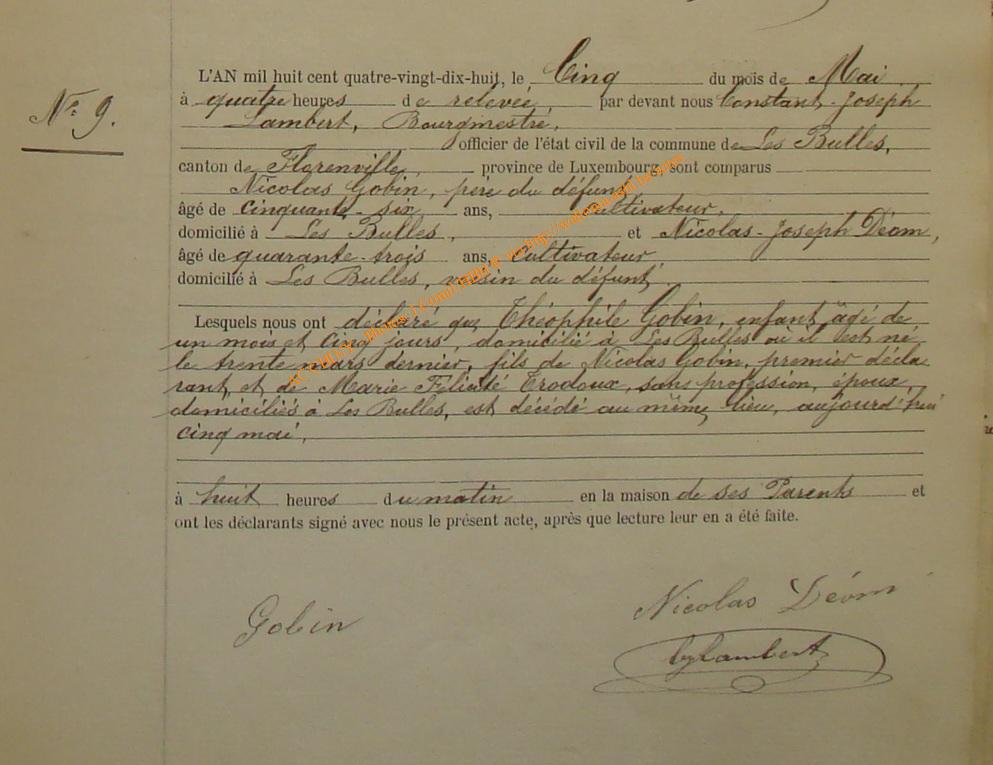 N° 9.
L'AN mil huit cent quatre-vingt-dix-huit, le Cinq du mois de Mai
à quatre heures de relevée, par devant nous Constant-Joseph
Lambert, Bourgmestre,
officier de l'état civil de la commune de Les Bulles,
canton de Florenville, province de Luxembourg, sont comparus
Nicolas Gobin, père du défunt
âgé de cinquante-six ans, cultivateur,
domicilié à Les Bulles, et Nicolas-Joseph Déom,
âgé de quarante-trois ans, Cultivateur,
domicilié à Les Bulles, voisin du défunt,
Lesquels nous ont déclaré que Théophile Gobin, enfant âgé de
un mois et cinq jours, domicilié à Les Bulles où il est né
le trente mars dernier, fils de Nicolas Gobin, premier décla-
rant, et de Marie Félicité Trodoux, sans profession, époux,
domiciliés à Les Bulles, est décédé au même lieu, aujourd'hui
cinq mai,
à huit heures du matin en la maison de ses Parents et
ont les déclarants signé avec nous le présent acte, après que lecture leur en a été faite.
Gobin
Nicolas Déom
Lambert